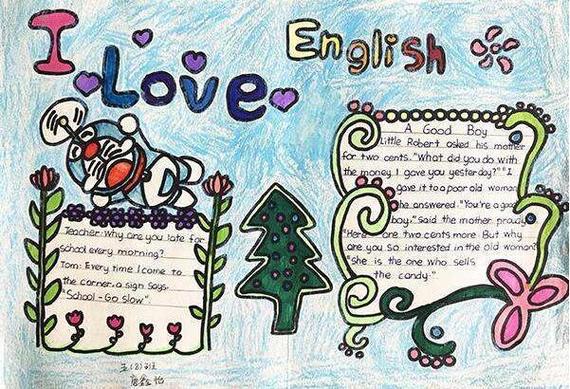 I Love English
Teacher: Why are you late for
school every morning?
Tom: Every time I come to
the corner, a sign says.
"School-Go slow".
A Good Boy
Little Robert asked his mother
for two cents. "What did you do with
the money I gave you yesterday?" "I
gave it to a poor old woman
he answered. "You're a good
boy." said the mother proudly.
"Here are two cents more. But why
are you so interested in the old woman?
"She is the one who sells
the candy."
五(8)班